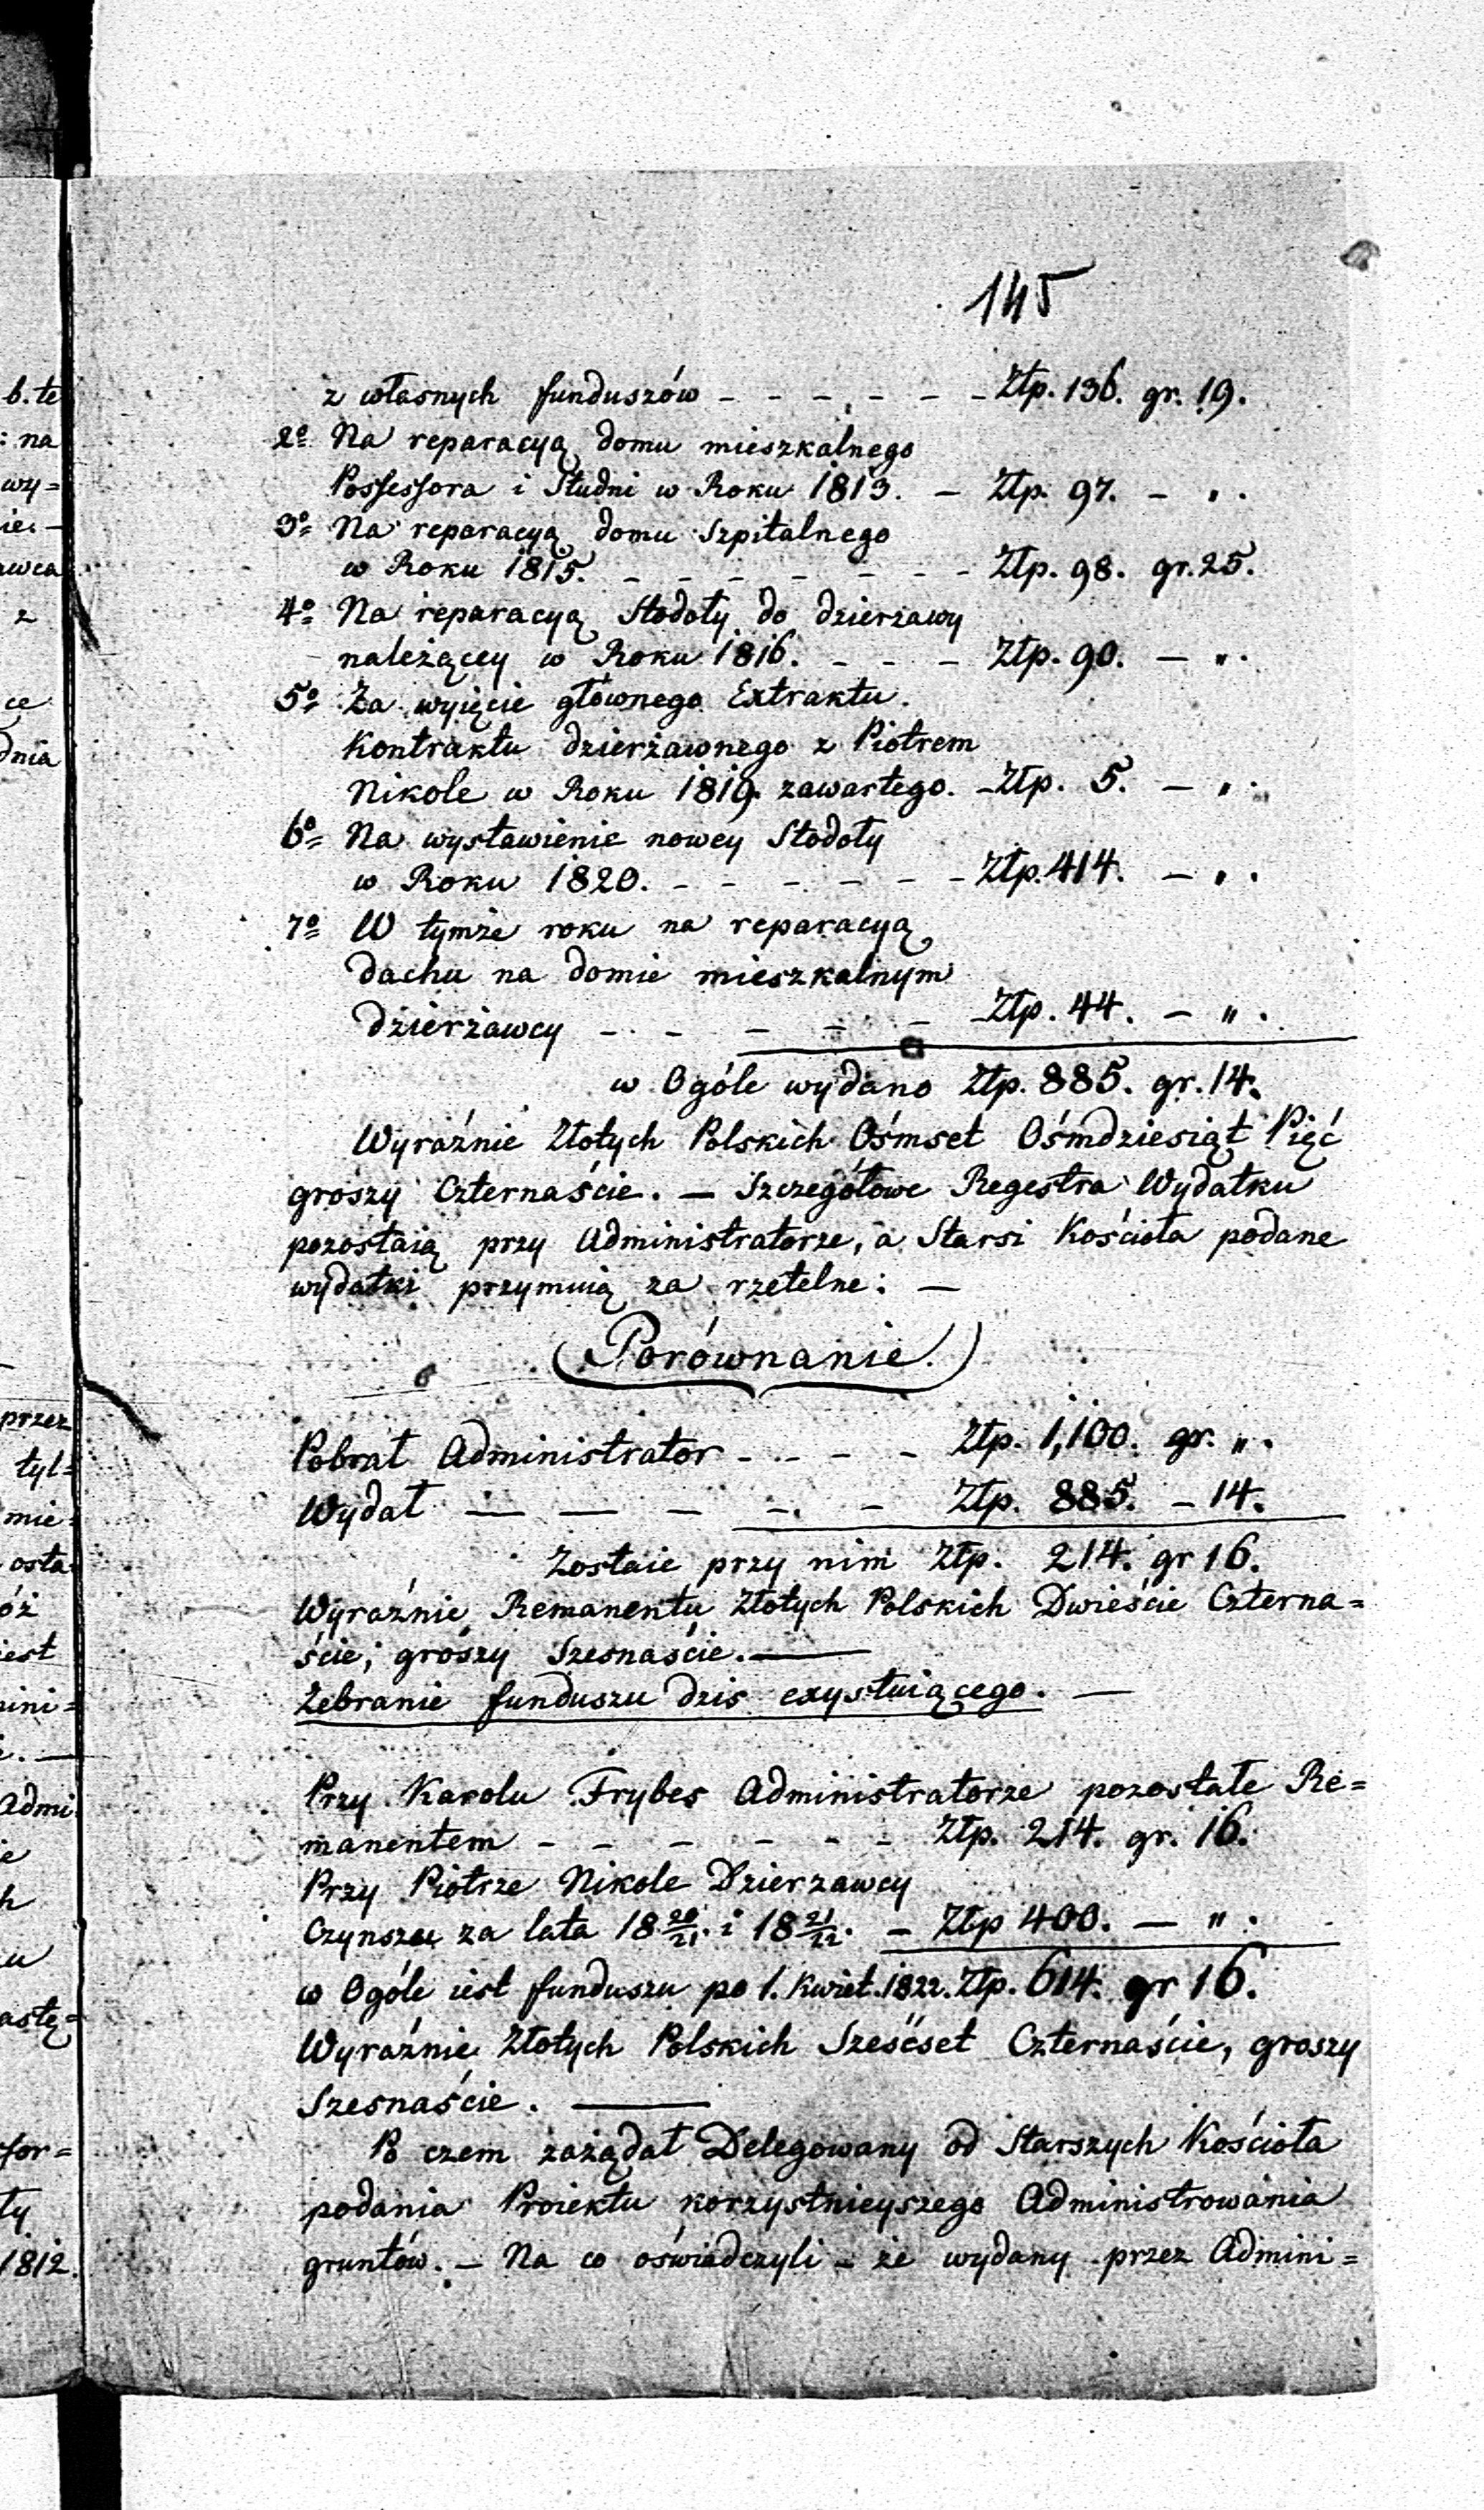 145
z własnych funduszów - - - - - - Ztp. 136. gr. 19.
2o Na reparacyą domu mieszkalnego
Possessora i Studni w Roku 1813. - Ztp. 97. - „.
3o Na reparacyą domu Szpitalnego
w Roku 1815. - - - - - - - Ztp. 98. gr. 25.
4o Na reparacyą Stodoły do dzierzawy
należącey w Roku 1816. - - - Ztp. 90. — „.
5o Za wyięcie głównego Extraktu.
Kontraktu dzierżawnego z Piotrem
Nikole w Roku 1819. zawartego. - Ztp. 5. — „.
6o Na wystawienie nowey Stodoły
w Roku 1820. - - - - - - Ztp. 414. — „.
7o W tymże roku na reparacyą
dachu na domie mieszkalnym
dzierżawcy - - - - - Ztp. 44. — „.
w Ogóle wydano Ztp. 885. gr. 14.
Wyraźnie Złotych Polskich Ośmset Ośmdziesiąt Pięć
groszy Czternaście. — Szczegółowe Regestra Wydatku
pozostaią przy Administratorze, a Starsi Kościoła podane
wydatki przymuią za rzetelne: —
(Porównanie.)
Pobrał Administrator - - - - Ztp. 1,100. gr. „.
Wydał — — — - - Ztp. 885. - 14.
Zostaie przy nim Ztp. 214. gr 16.
Wyraźnie Remanentu Złotych Polskich Dwieście Czterna=
ście, groszy Szesnaście. —
Zebranie funduszu dzis exystuiącego. —
Przy Karolu Frybes Administratorze pozostałe Re=
manentem - - - - - - Ztp. 214. gr. 16.
Przy Piotrze Nikole Dzierzawcy
Czynszu za lata 18 20/21. i 18 21/22. - Ztp 400. — „.
w Ogóle iest funduszu po 1. Kwiet. 1822. Ztp. 614. gr 16.
Wyraźnie Złotych Polskich Sześćset Czternaście, groszy
Szesnaście. —
Po czem zażądał Delegowany od Starszych Kościoła
podania Proiektu korzystnieyszego Administrowania
gruntów. — Na co oświadczyli - że wydany przez Admini=